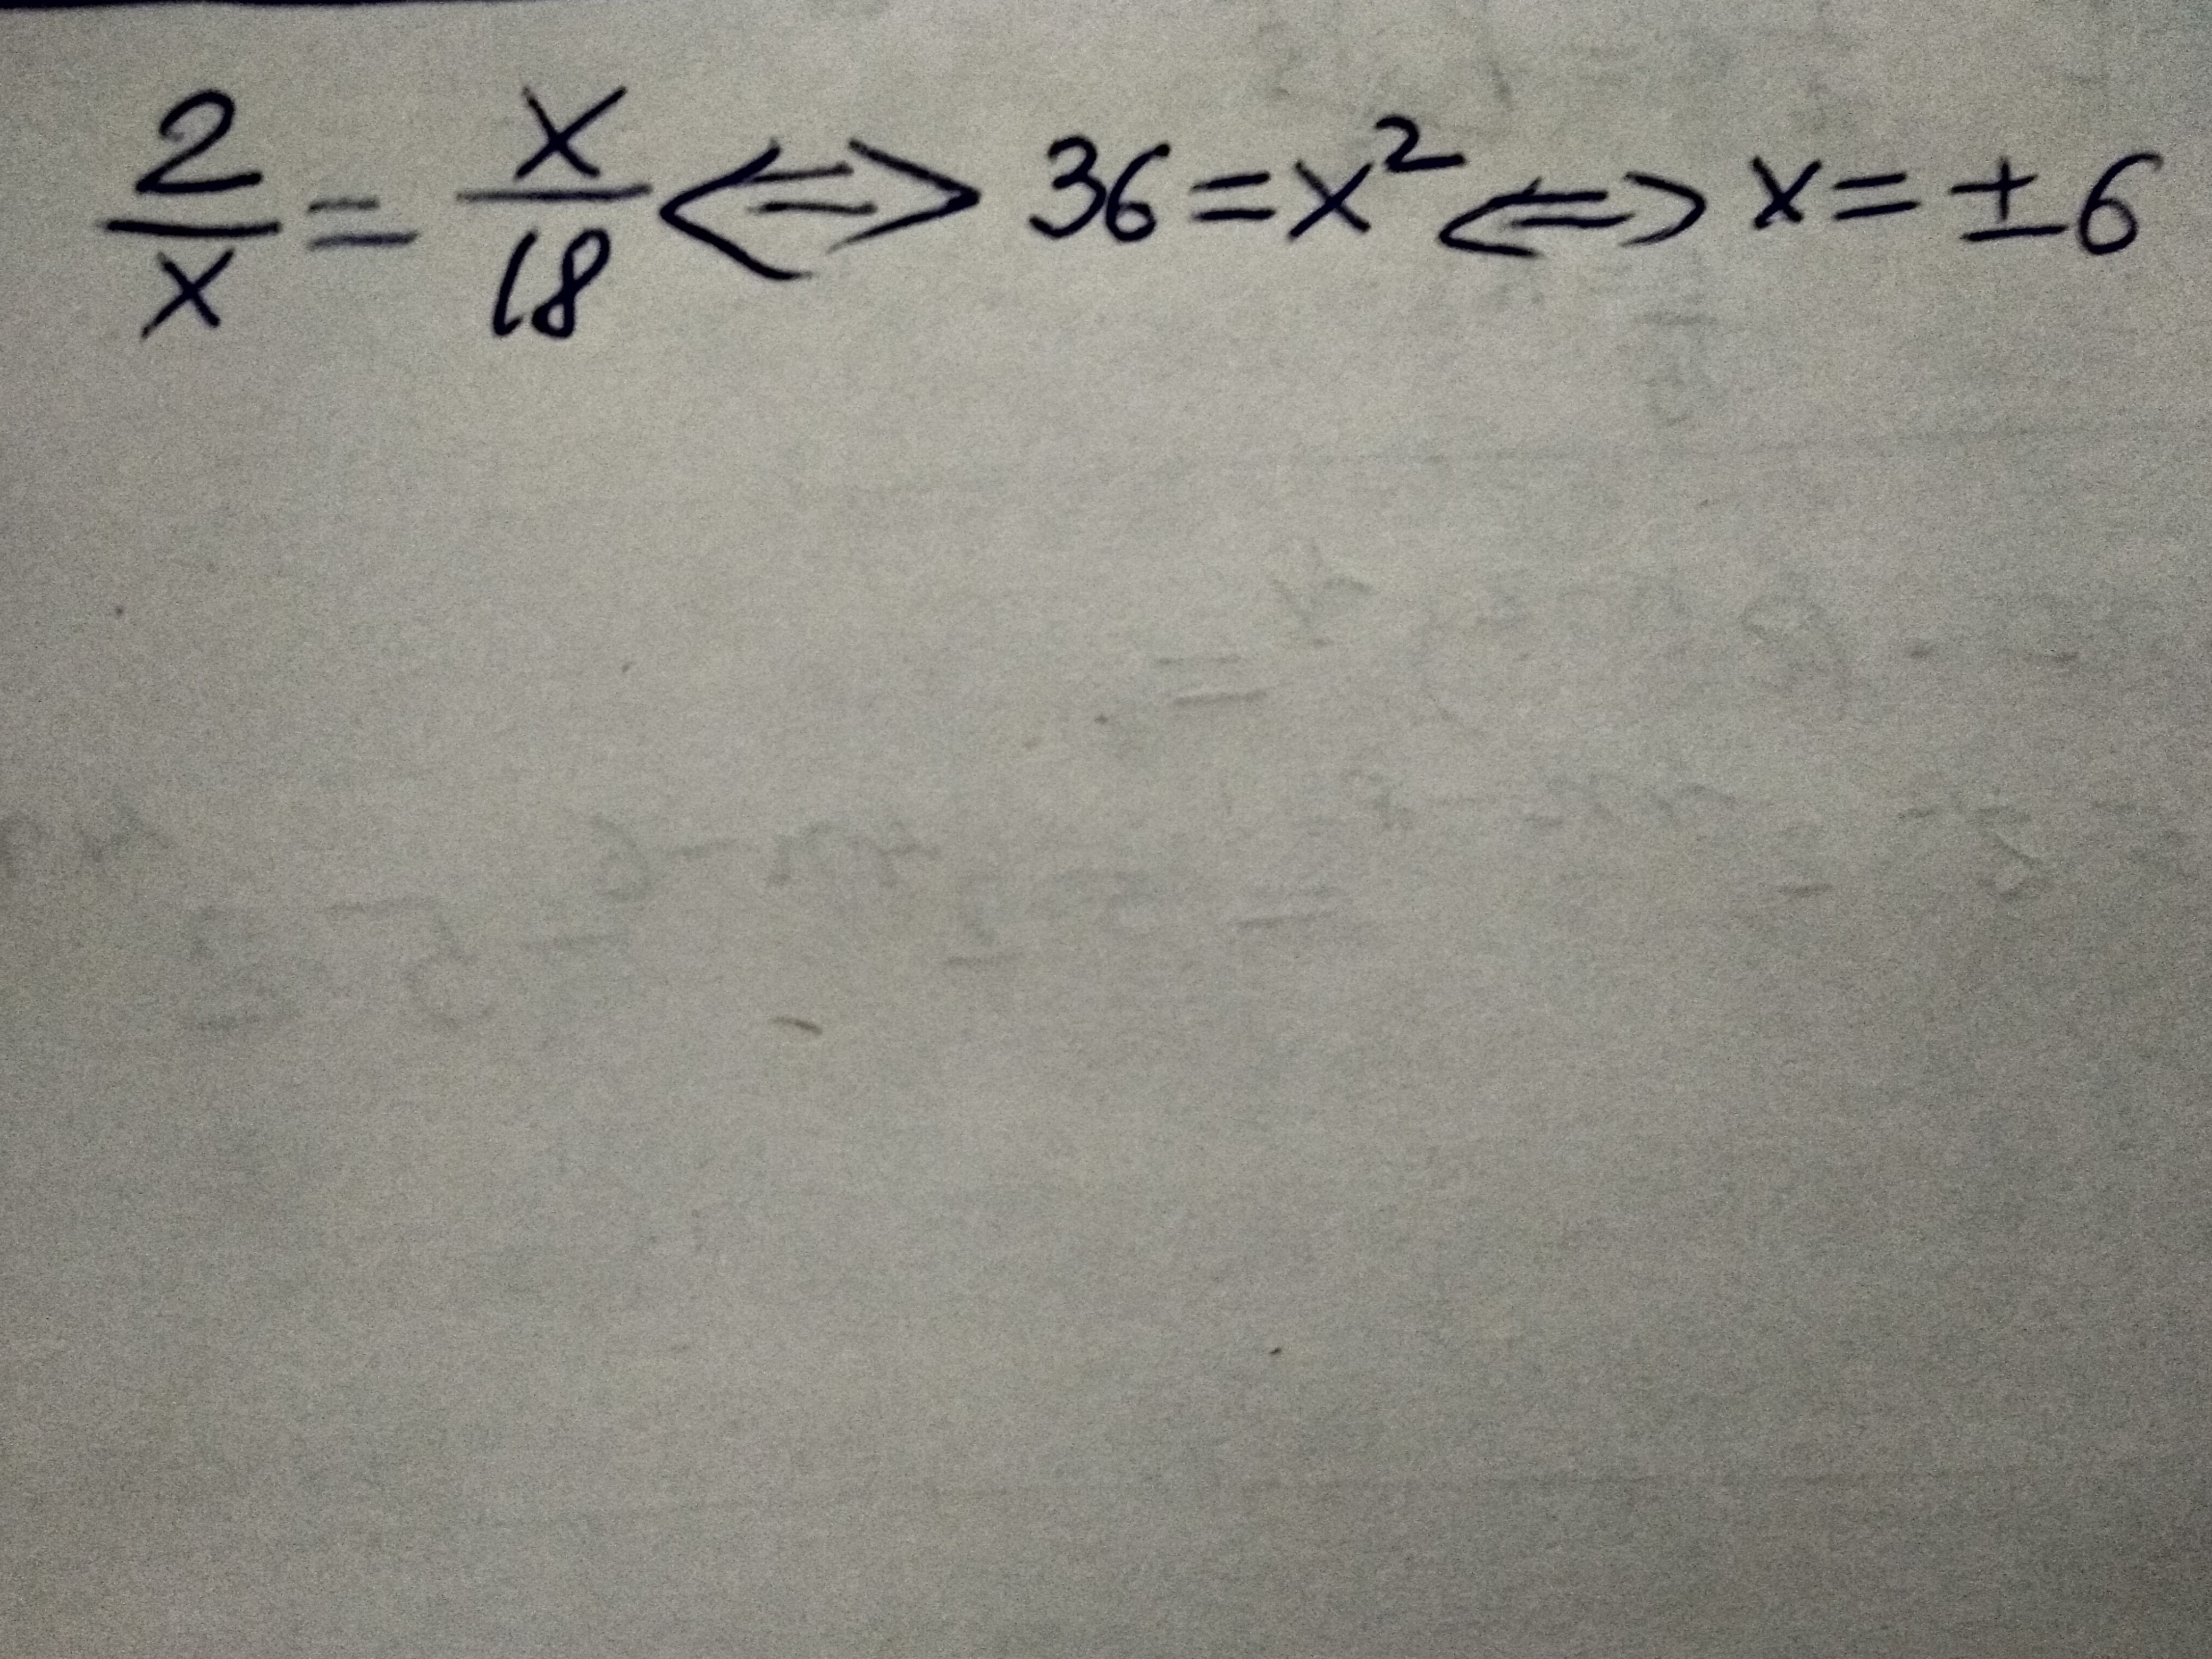 2/x = x/18 <=> 36 = x² <=> x = ±6